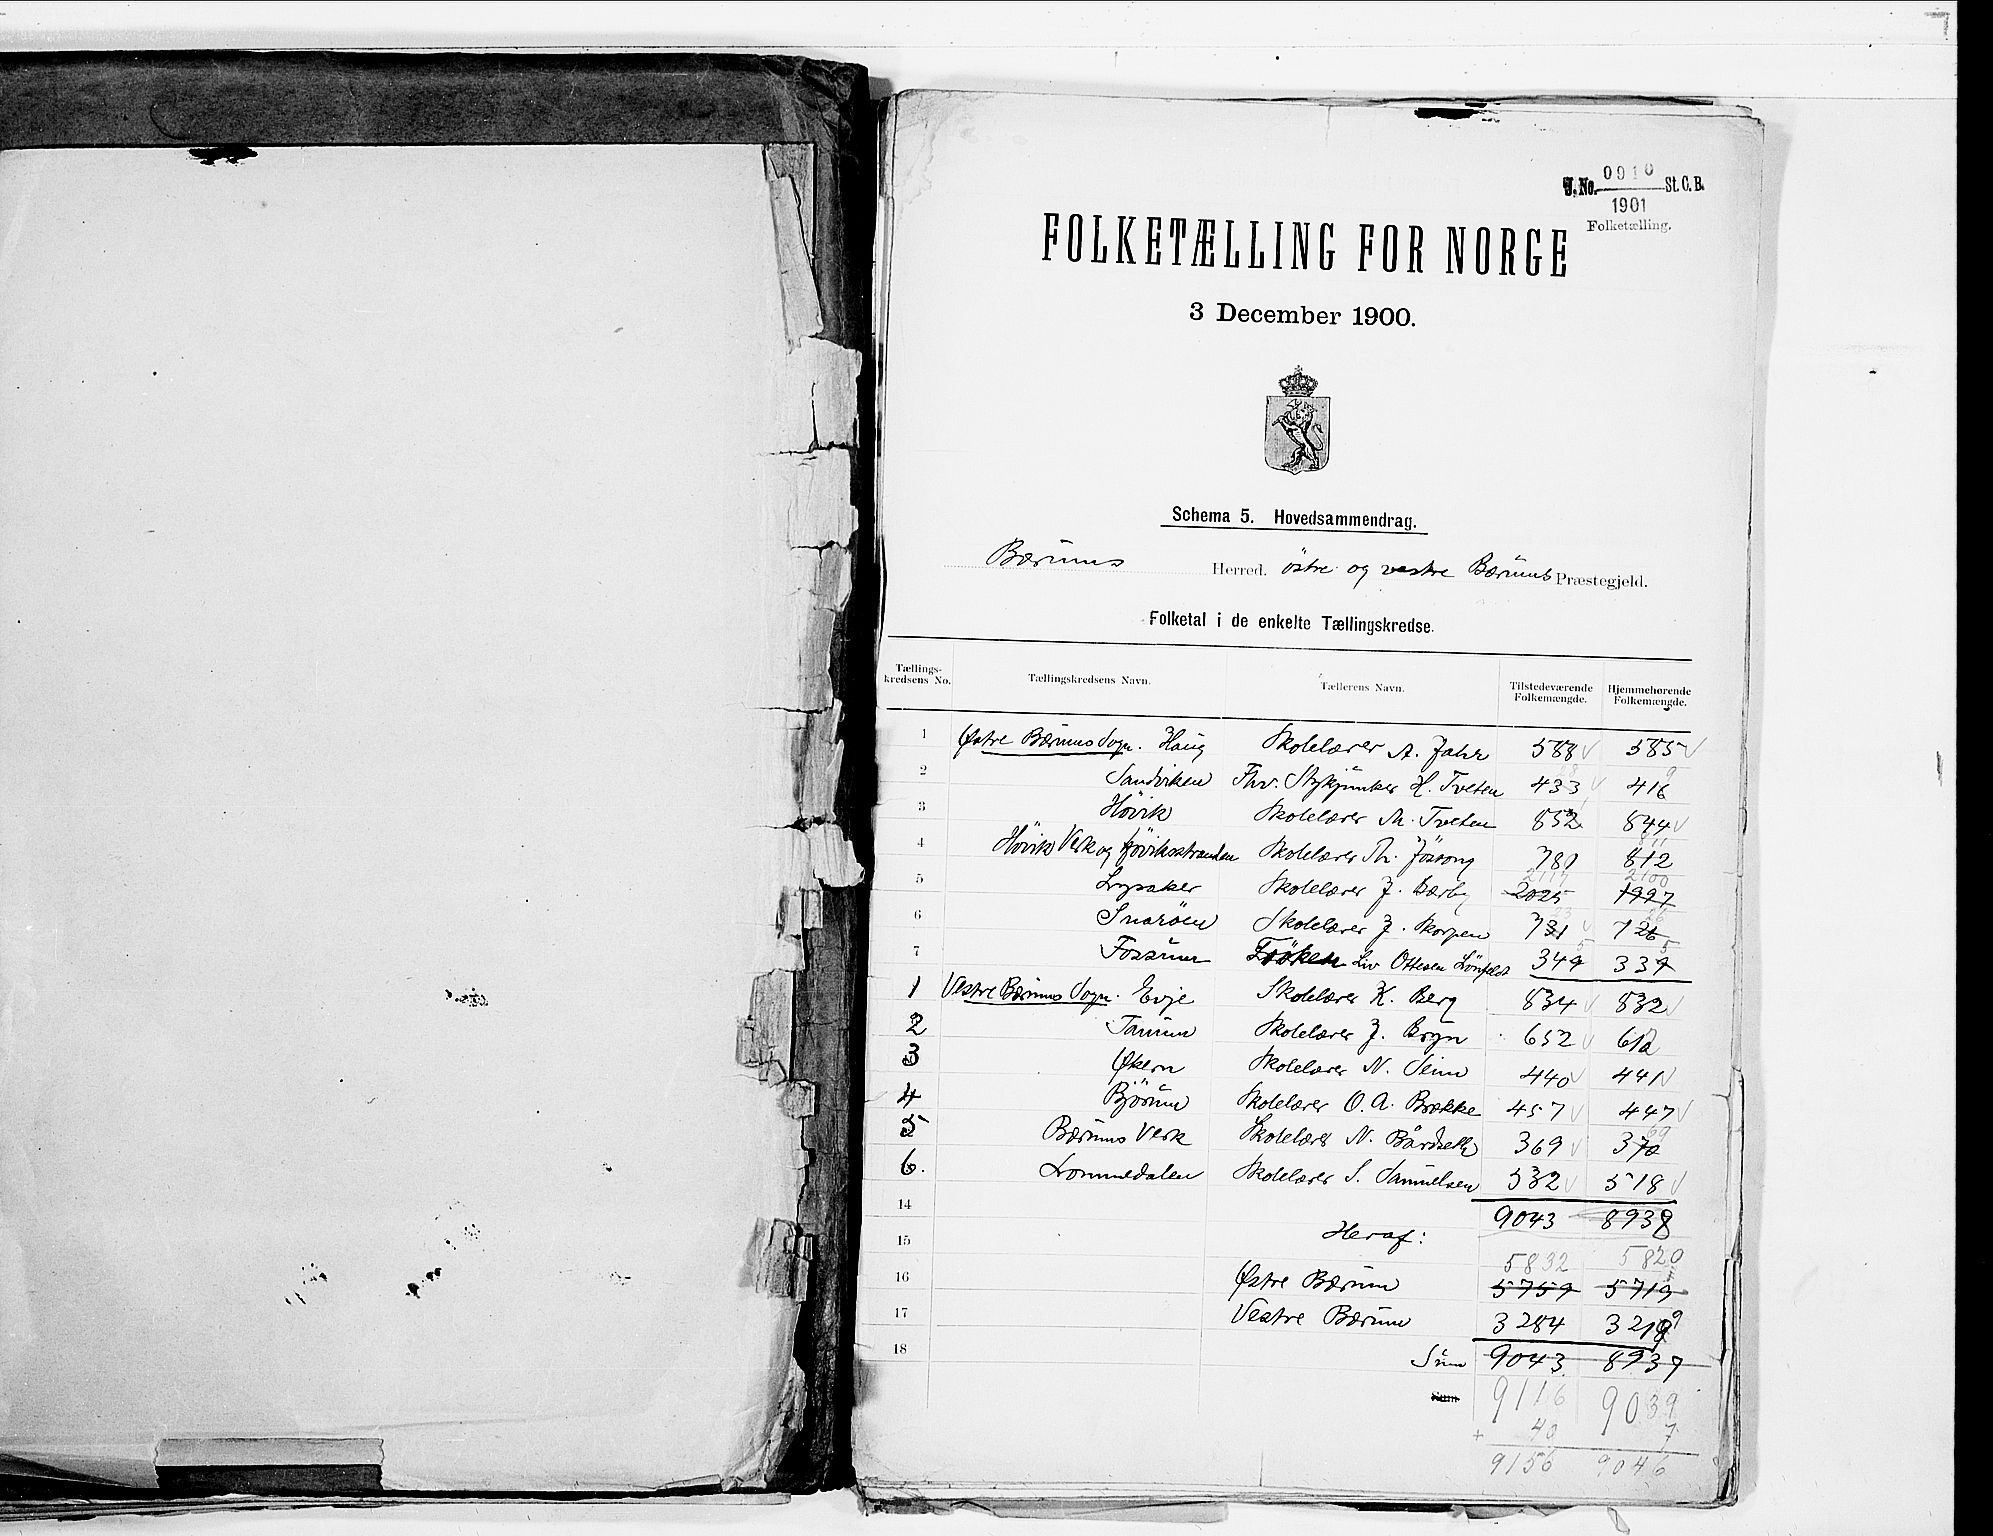 J. No. 0910 St. C. B.
1901
Folketælling.
FOLKETÆLLING FOR NORGE
3 December 1900.
Schema 5. Hovedsammendrag.
Bærums Herred. östre og vestre Bærums Præstegjeld.
Folketal i de enkelte Tællingskredse.
Tællings-kredsens No. Tællingskredsens Navn. Tællerens Navn. Tilstedeværende Folkemængde. Hjemmehørende Folkemængde.
1 Østre Bærums Sogn. Haug Skolelærer A. Jahr 588 585
2 Sandviken Fhv. Stykjunker H. Tveten 433 416
3 Høvik Skolelærer M. Tveten 852 844
4 Høvik Verk og Høvikstranden Skolelærer Th. 781 812
2117 2100
5 Lysaker Skolelærer J. Bærby 2025 1997
6 Snarøen Skolelærer J. Skorpen 731 726
7 Fossum Frøken Liv Ottesen Lönfeldt 349 339
1 Vestre Bærums Sogn. Evje Skolelærer K. Berg 834 832
2 Tanum Skolelærer J. Bryn 652 612
3 Økern Skolelærer N. Seim 440 441
4 Bjørum Skolelærer O. A. Brække 457 447
5 Bærums Verk Skolelærer N. Bårdseth 369 370
6. Lommedalen Skolelærer S. Samuelsen 532 518
14 9043 8938
15 Heraf:
5832 5820
16 Østre Bærum 5759 5719
17 Vestre Bærum 3284 3219
18 Sum 9043 8937
Sum
9116 9039
+ 40 7
9156 9046